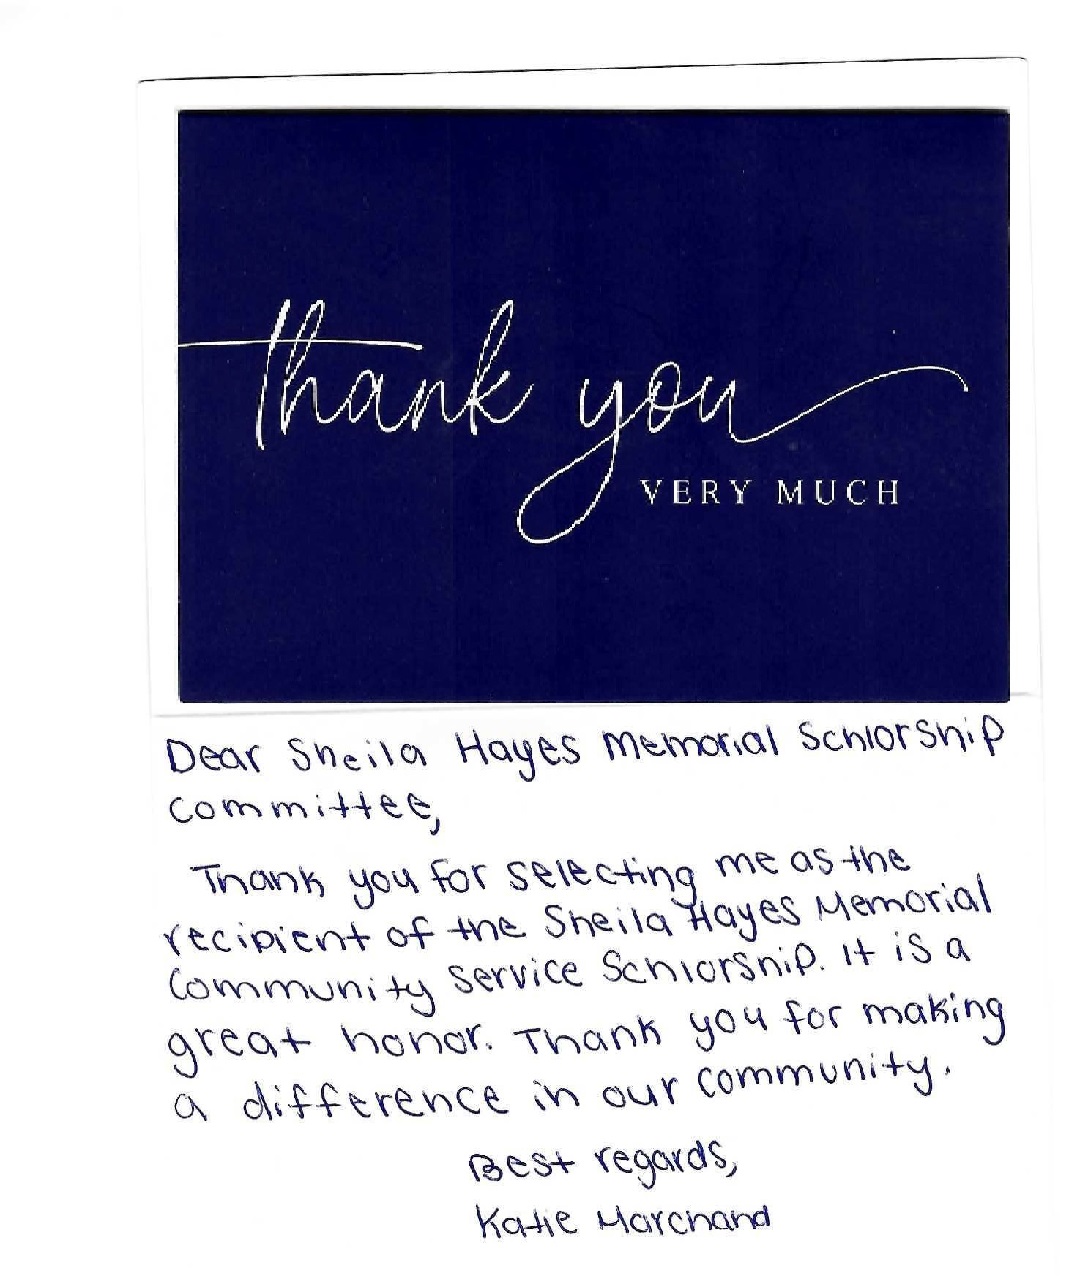 thank you
VERY MUCH
Dear Sheila Hayes Memorial Schlorship
Committee,
Thank you for selecting me as the
recipient of the Sheila Hayes Memorial
Community Service Schlorship. It is a
great honor. Thank you for making
a difference in our community.
Best regards,
Katie Marchand